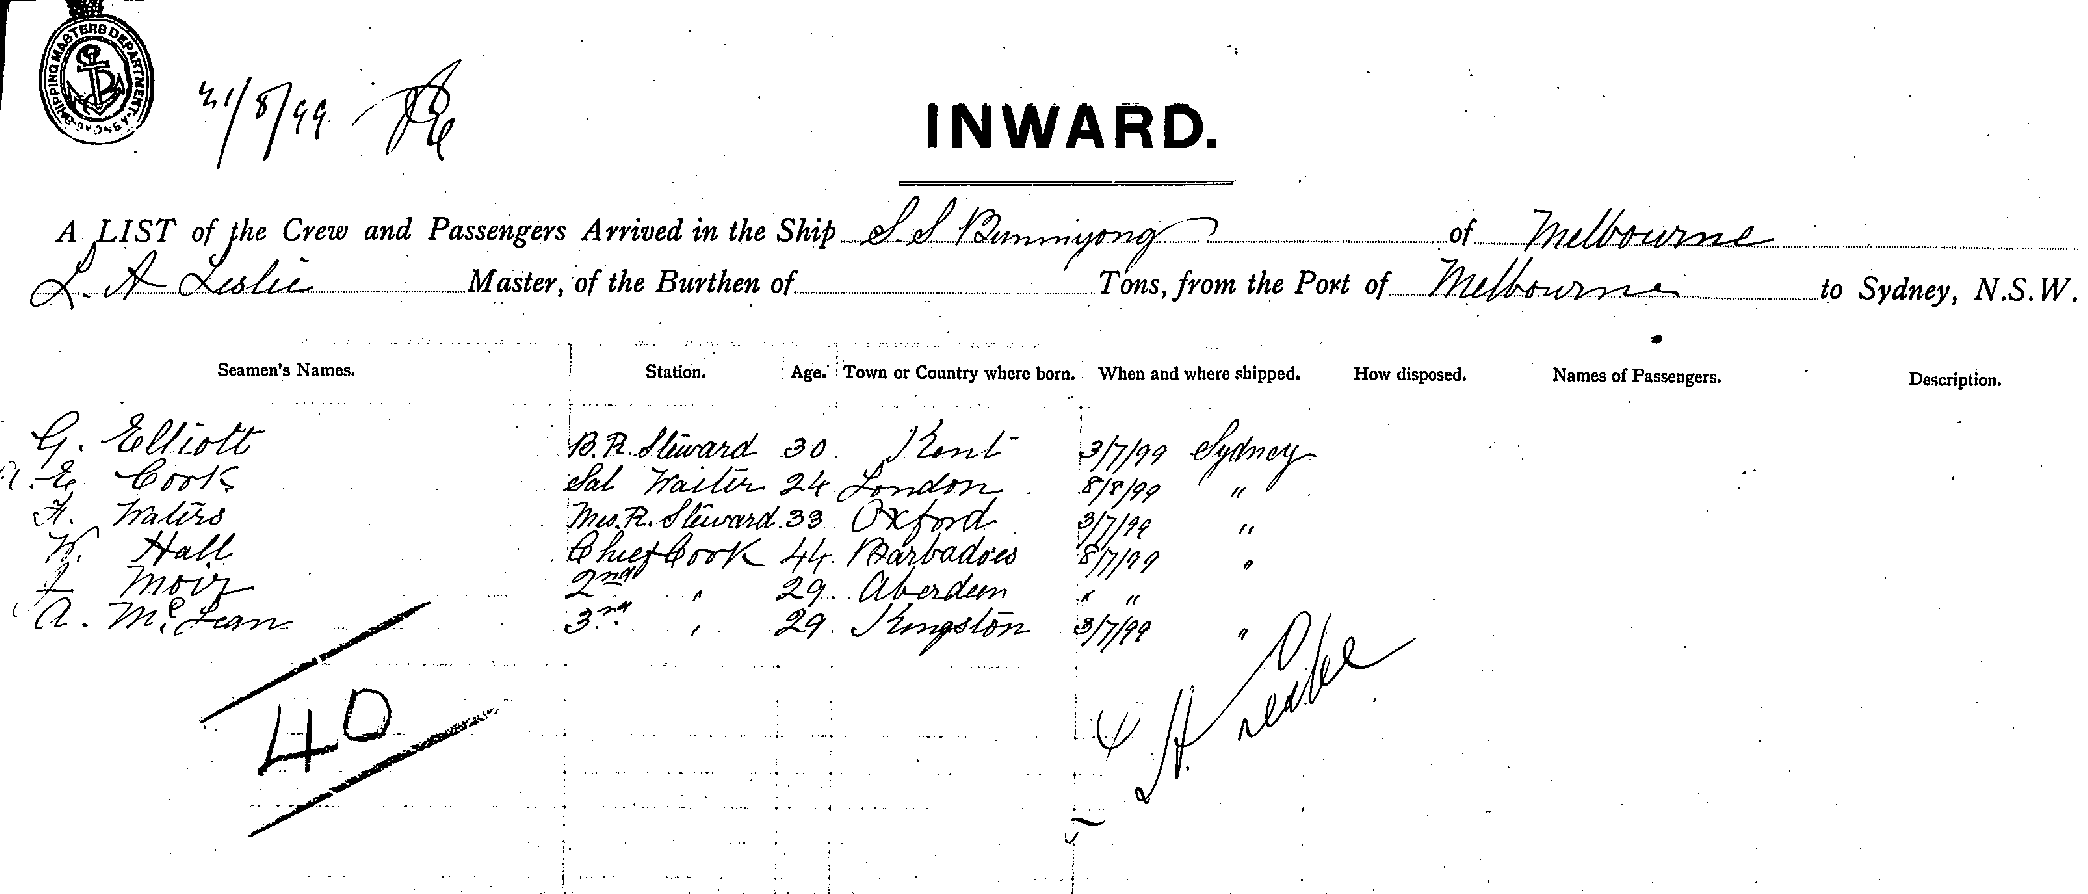 SHIPPING MASTERS DEPARTMENT
21/8/99
INWARD.
A LIST of the Crew and Passengers Arrived in the Ship S S Buninyong of Melbourne
L. A Leslie Master, of the Burthen of Tons, from the Port of Melbourne to Sydney, N.S.W.
Seamen's Names. Station. Age. Town or Country where born. When and where shipped. How disposed. Names of Passengers. Description.
G. Elliott B.R. Steward 30 Kent 3/7/99 Sydney
A. E. Cook Sal Waiter 24 London 8/8/99 "
Waters Mes. R. Steward 33 Oxford 3/7/99 "
W. Hall Chief Cook 44 Barbadoes 8/7/99 "
J Moir 2nd " 29 Aberdeen " "
A. McLean 3rd " 29 Kingston 3/7/99 "
40